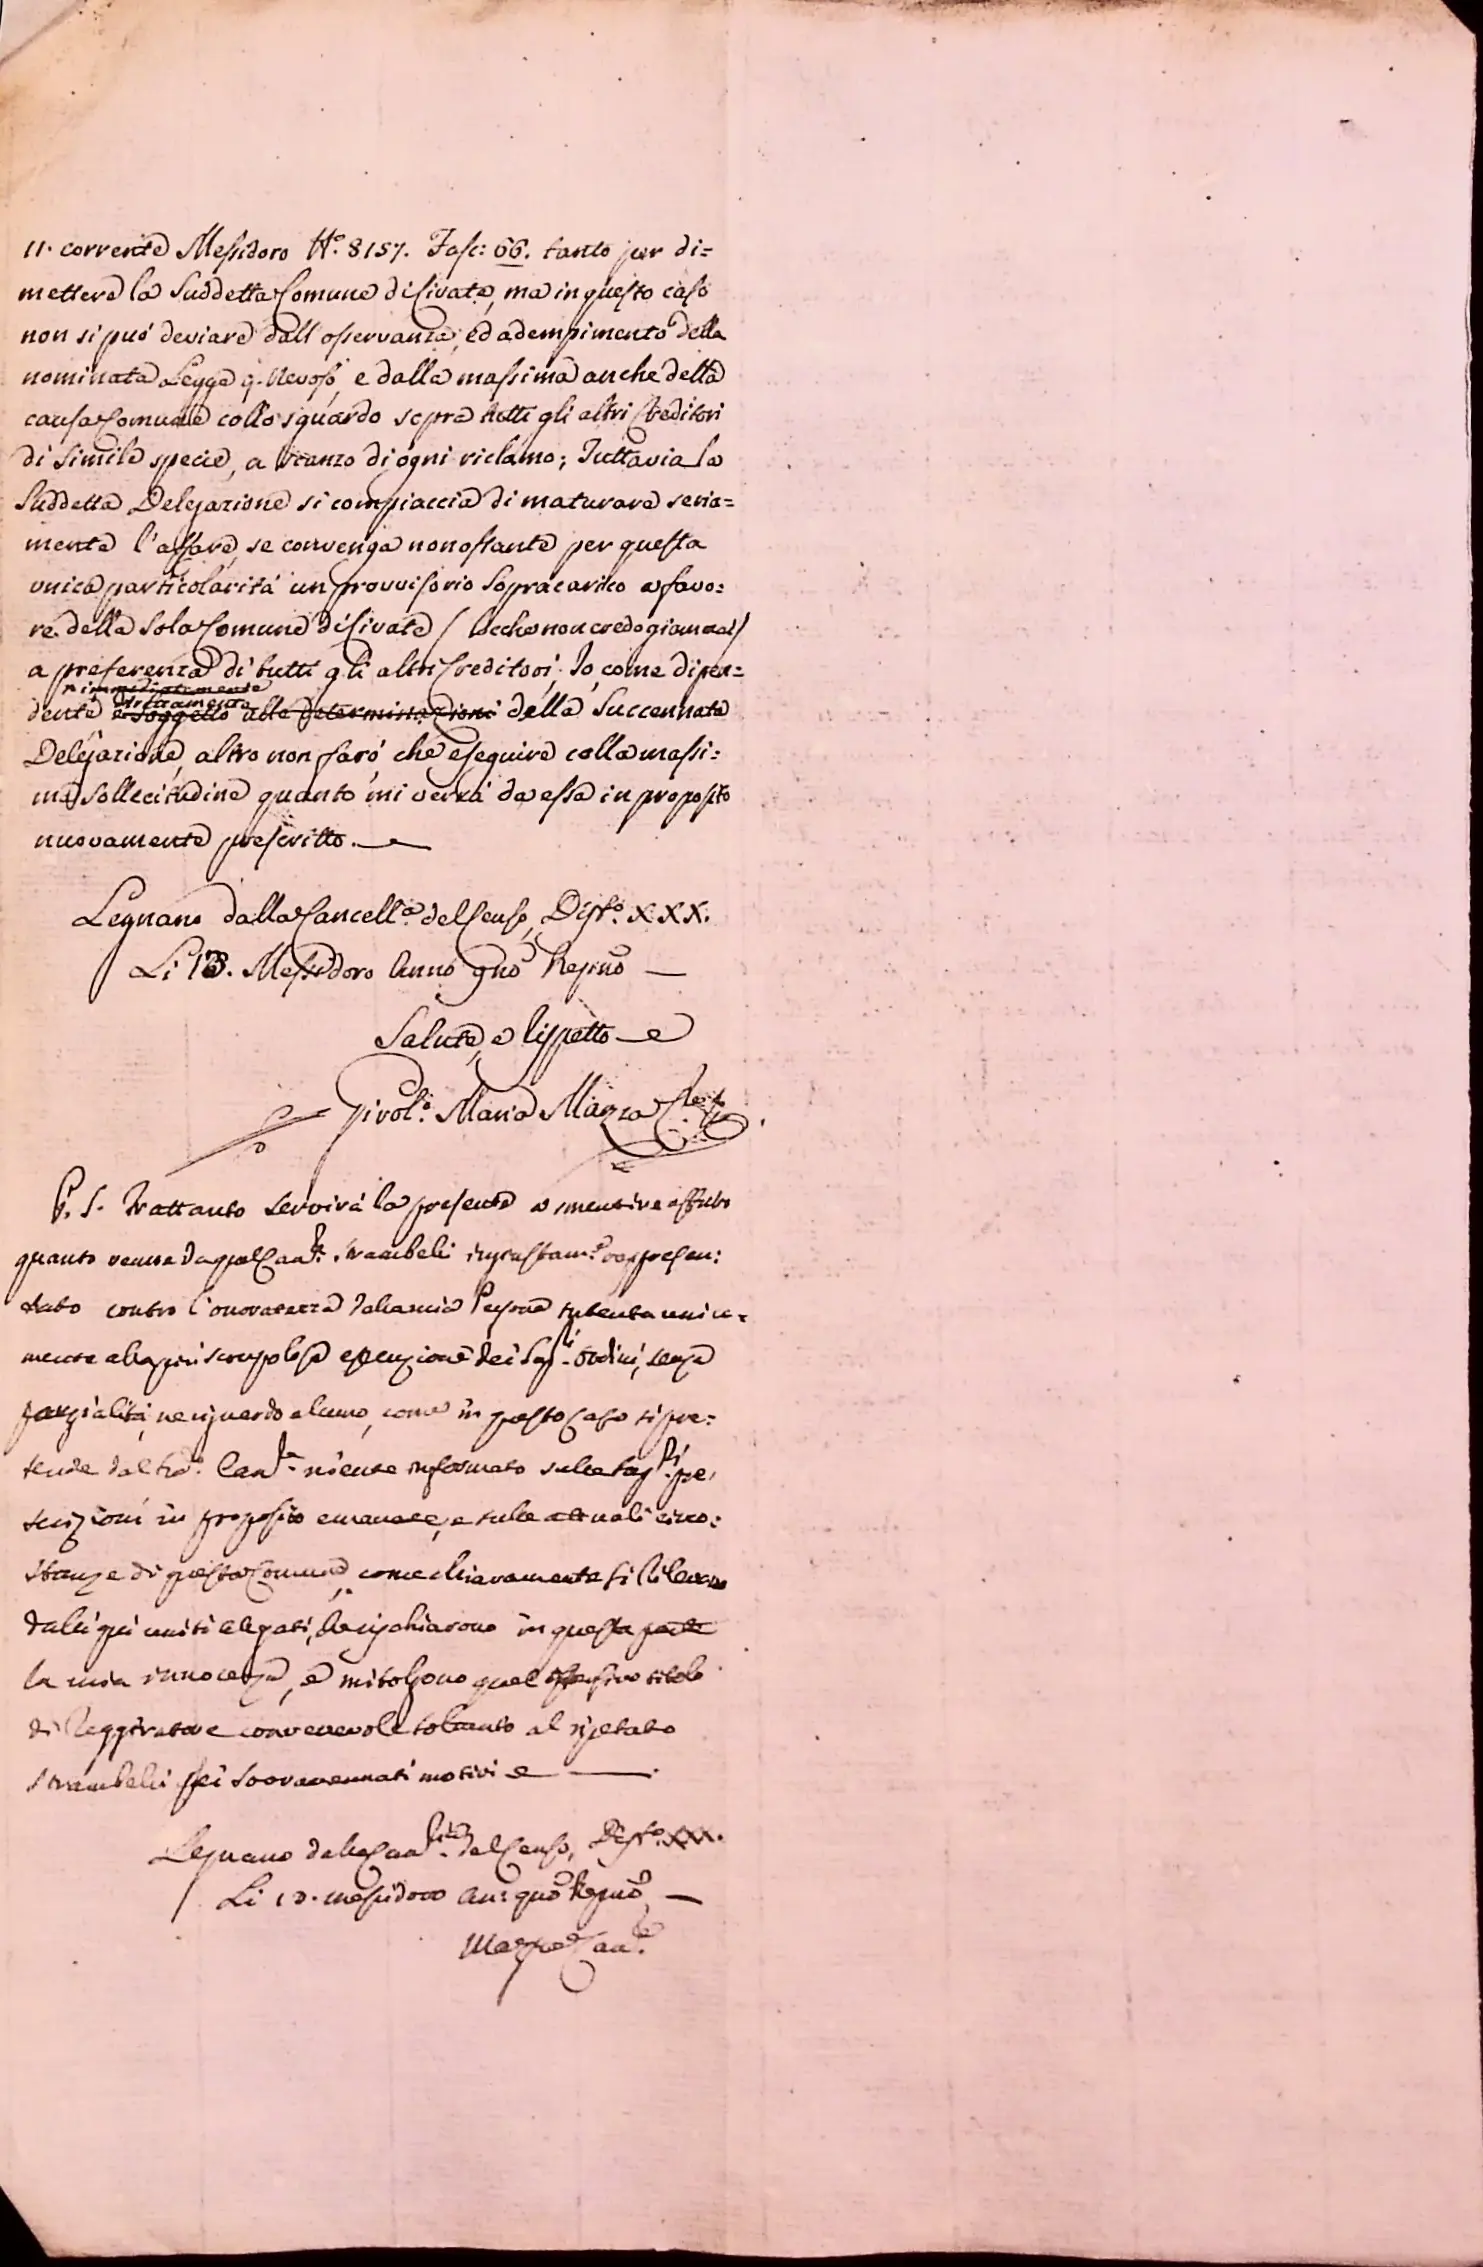 11. corrente Messidoro N.° 8157. Fasc: 66. tanto per di=
mettere la Suddetta Comune di Civate, ma in questo caso
non si può deviare dall'osservanza, ed adempimento della
nominata Legge 9. Nevoso, e dalla massima anche della
causa Comune collo sguardo sopra tutti gli altri Creditori
di simile specie, a scanzo di ogni riclamo; Tuttavia la
Suddetta Delegazione si compiaccia di maturare seria=
mente l'affare, se convenga nonostante per questa
unica particolarità un provvisorio Sopracarico a favo=
re della sola Comune di Civate / locche non credo giammai /
a preferenza di tutti gli altri Creditori; Io, come dipen=
immediatamente
direttamente
dente e soggetto alle determinazioni della Succennata
Delegazione, altro non farò che eseguire colla massi=
ma Sollecitudine quanto mi verrà da essa in proposito
nuovamente prescritto.
Legnano dalla Cancell.a del Censo, Dist.o XXX.
Li 13. Messidoro Anno 9no Repino
Salute, e Rispetto
Maria Mazza
P. S. Trattanto servirà la presente a smentire affatto
quanto venne da quel Can.re Strambelli ingiustam.e rappresen:
tato contro l'onoratezza della mia Persona intenta unica=
mente alla più scrupolosa esecuzione dei Sup.ri Ordini, senza
parzialità, ne riguardo alcuno, come in questo Caso si pre=
tende dal Can.re niente informato sulle Sup.ri pre
scrizioni in proposito emanate, e sulle attuali circo=
stanze di questa Comune, come chiaramente si rilevano
dalli qui uniti allegati, che rischiarono in questa parte
la mia innocenza, e mi tolgono quel offensivo titolo
di Raggiratore convenevole soltanto al ripetuto
Strambelli pei sovracennati motivi
Legnano dalla Can.ria del Censo, Dist.o XXX.
Li 13. Messidoro An: 9no Repno
Mazza Can.re